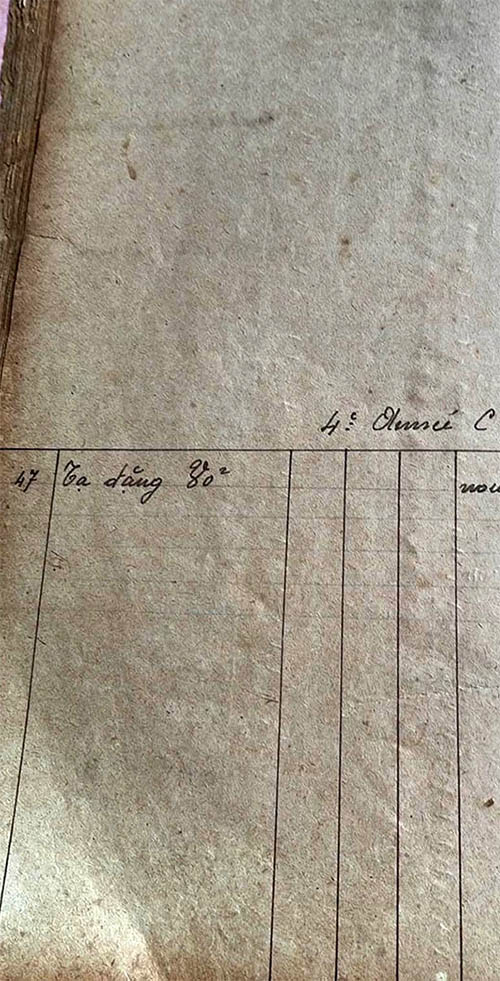 4e Année C
47 Tạ đăng Vo²